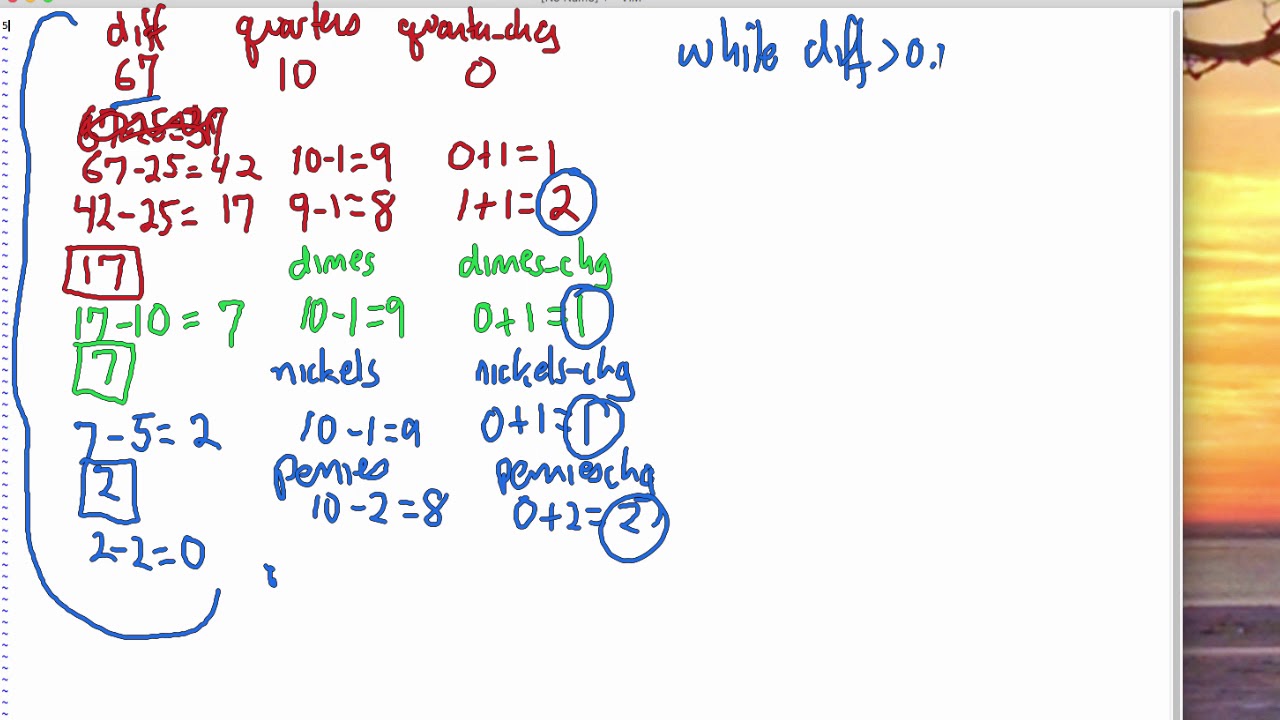 diff quarters quarters_chg while diff > 0.
67 10 0
67-25=42 10-1=9 0+1=1
42-25=17 9-1=8 1+1=2
17 dimes dimes-chg
17-10=7 10-1=9 0+1=1
7 nickels nickels-chg
7-5=2 10-1=9 0+1=1
2 pennies pennieschg
10-2=8 0+2=2
2-2=0